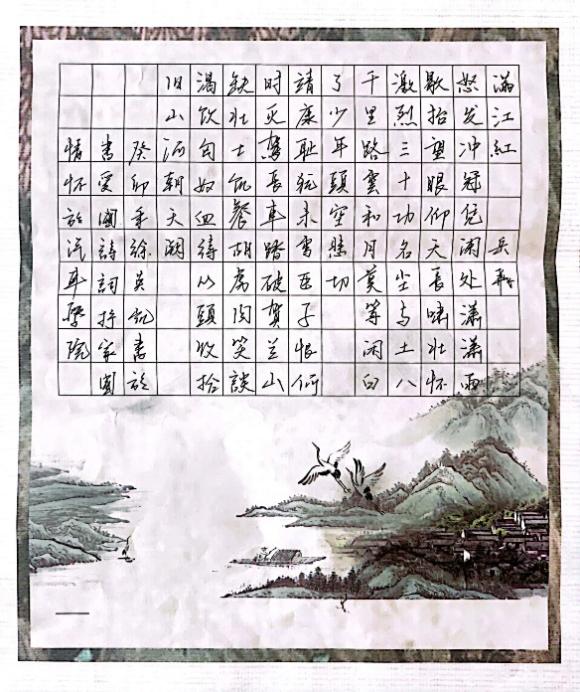 满江紅 岳飛
怒发冲冠凭阑处潇潇雨
歇抬望眼仰天長啸壮怀
激烈三十功名尘与土八
千里路雲和月莫等闲白
了少年頭空悲切
靖康耻犹未雪臣子恨何
时灭驾長車踏破贺兰山
缺壮士饥餐胡虏肉笑談
渴饮匈奴血待从頭收拾
旧山河朝天阙
癸卯年徐英凯書於
書爱國詩詞抒家國
情怀於汽車學院